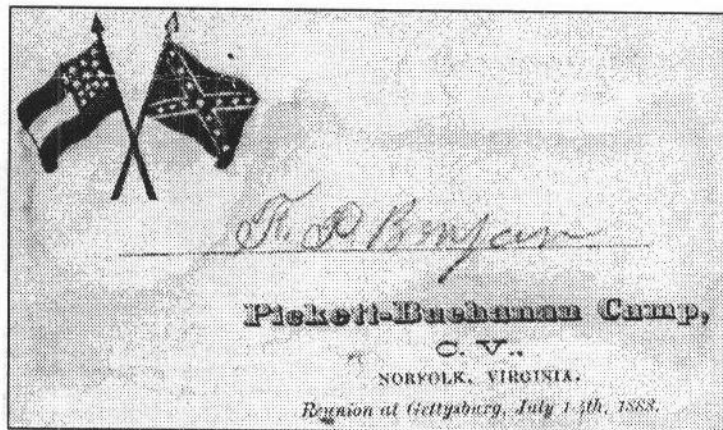 F. P. Benjan
Pickett-Buchanan Camp,
C. V.,
NORFOLK, VIRGINIA.
Reunion at Gettysburg, July 1888.